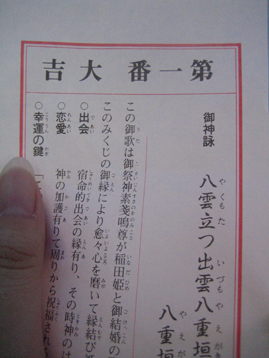 第一番 大吉
御神詠
八雲立つ出雲八重垣
八重垣
この御歌は御祭神素戔嗚尊が稲田姫と御結婚の
このみくじの御縁により愈々心を磨いて縁結び
○出会 宿命的出会の縁有り、その時神の
○恋愛 神の加護有りて周りから祝福され
○幸運の鍵